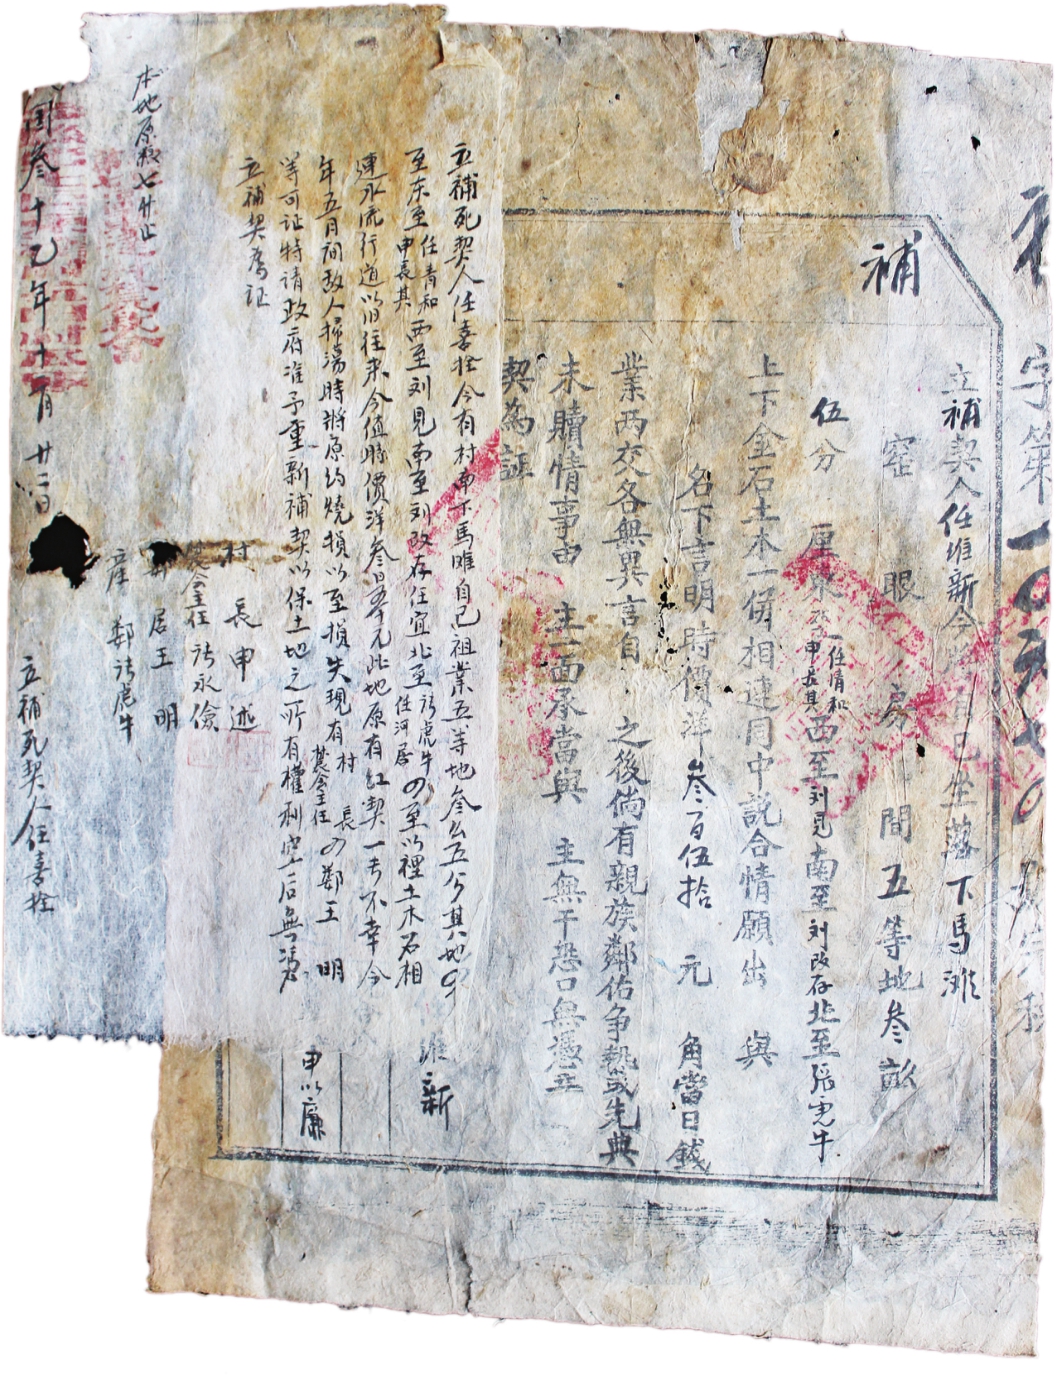 字第
補
立補契人任堆新今將自己坐落下馬滩
窑 眼 房 間五等地叁畝
伍分 厘東至任情和申長其西至刘見南至刘改存北至張虎牛
上下金石土木一倂相連同中説合情願出 與
名下言明時價洋叁百伍拾 元 角當日錢
業两交各無異言自 之後倘有親族鄰佑争執或先典
未贖情事由 主一面承當與 主無干恐口無憑立
契為証
堆新
申以廉
立補死契人任喜拴今有村南下馬滩自己祖業五等地叁厶五分其地四
至东至任青和申長其西至刘見南至刘改存任宜北至張虎牛任河居四至以裡土木石相
連水流行道以旧往来今值時價洋叁百五十元此地原有紅契一張不幸今
年五月间敌人掃荡時將原约燒損以至損失現有村長農会主任四鄰王明
等可证特请政府准予重新補契以保土地之所有權利空后無憑
立補契為证
村長申述
農会主任張永儉
鄰居王明
産鄰張虎牛
本地原粮七升
國叁十乙年十一月廿二日
立補死契人任喜拴